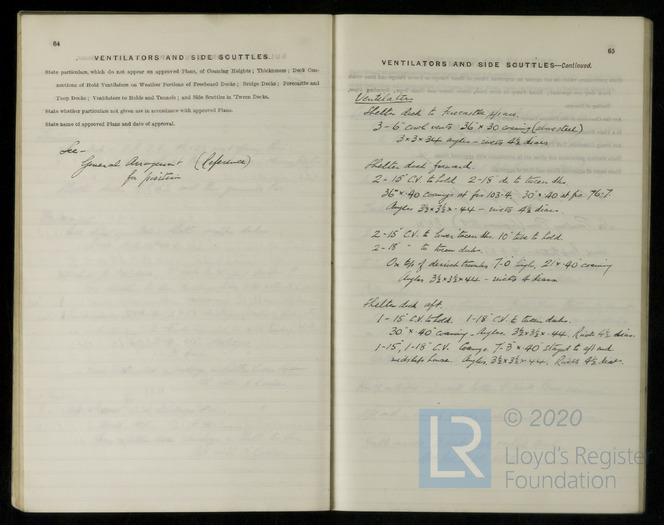 64
VENTILATORS AND SIDE SCUTTLES.
State particulars, which do not appear on approved Plans, of Coaming Heights; Thickness; Deck Con-
nections of Hold Ventilators on Weather Portions of Freeboard Decks; Bridge Decks; Forecastle and
Poop Decks; Ventilators to Holds and Tunnels; and Side Scuttles in 'Tween Decks.
State whether particulars not given are in accordance with approved Plans.
State name of approved Plans and date of approval.
See -
General Arrangement (Reference)
for position
65
VENTILATORS AND SIDE SCUTTLES—Continued.
Ventilators
Shelter deck to Forecastle spaces.
3 - 6" cowl vents 36" × 30 coaming
3 × 3 × 34 angles - rivets 4½ diars
Shelter deck forward.
2 - 15" C.V. to hold 2 - 15" do to tween dks.
36" × .40 coamings at fra 103-4. 30" × .40 at fra 76-7.
Angles 3½ × 3½ × .44 - rivets 4½ diars.
2 - 15" C.V. to lower tween dks. 10" tube to hold.
2 - 18" " to tween decks.
On top of derrick trunks 7'-0" high, 21" × .40" coaming
Angles 3½ × 3½ × .44 - rivets 4 diars
Shelter deck aft.
1 - 15" C.V. to hold. 1 - 18" C.V. to tween decks.
30" × .40" coaming - Angles 3½ × 3½ × .44. Rivets 4½ diars.
1 - 15", 1 - 18" C.V. Coamgs. 7'-3" × .40" stayed to aft end
midship house. Angles 3½ × 3½ × .44. Rivets 4½ diars.
LR
© 2020
Lloyd's Register
Foundation